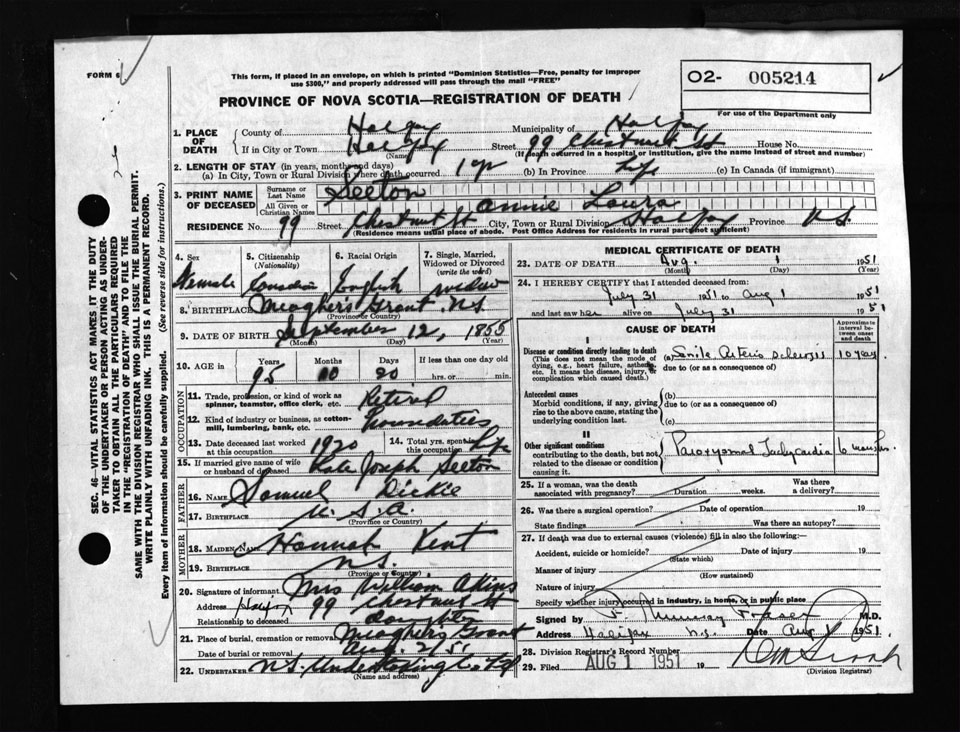 FORM 6
This form, if placed in an envelope, on which is printed "Dominion Statistics—Free, penalty for improper
use $300," and properly addressed will pass through the mail "FREE"
O2- 005214
For use of the Department only
PROVINCE OF NOVA SCOTIA—REGISTRATION OF DEATH
SEC. 46—VITAL STATISTICS ACT MAKES IT THE DUTY
OF THE UNDERTAKER OR PERSON ACTING AS UNDER-
TAKER TO OBTAIN ALL THE PARTICULARS REQUIRED
IN THE "REGISTRATION OF DEATH" AND TO FILE THE
SAME WITH THE DIVISION REGISTRAR WHO SHALL ISSUE THE BURIAL PERMIT.
WRITE PLAINLY WITH UNFADING INK. THIS IS A PERMANENT RECORD.
Every item of information should be carefully supplied. (See reverse side for instructions.)
1. PLACE OF DEATH County of Halifax Municipality of Halifax
If in City or Town Halifax (Name) Street 99 Chestnut St House No.
(If death occurred in a hospital or institution, give the name instead of street and number)
2. LENGTH OF STAY (in years, months and days)
(a) In City, Town or Rural Division where death occurred 1 yr (b) In Province Life (c) In Canada (if immigrant)
3. PRINT NAME OF DECEASED Surname or Last Name Seeton
All Given or Christian Names Annie Laura
RESIDENCE No. 99 Street Chestnut St City, Town or Rural Division Halifax Province N S
(Residence means usual place of abode. Post Office Address for residents in rural parts not sufficient)
4. Sex Female
5. Citizenship (Nationality) Canadian
6. Racial Origin English
7. Single, Married, Widowed or Divorced (write the word) widow
8. BIRTHPLACE Meaghers Grant N.S.
(Province or Country)
9. DATE OF BIRTH September 12, 1855
(Month) (Day) (Year)
10. AGE Years 95 Months 10 Days 20 If less than one day old hrs. or min.
OCCUPATION
11. Trade, profession, or kind of work as spinner, teamster, office clerk, etc. Retired
12. Kind of industry or business, as cotton-mill, lumbering, bank, etc. Housedutees
13. Date deceased last worked at this occupation 1920
14. Total yrs. spent in this occupation Life
15. If married give name of wife or husband of deceased Late Joseph Seeton
FATHER
16. NAME Samuel Dickie
17. BIRTHPLACE U.S.A.
(Province or Country)
MOTHER
18. MAIDEN NAME Hannah Kent
19. BIRTHPLACE N.S.
(Province or Country)
20. Signature of informant Mrs William Akins
Address Halifax 99 Chestnut St
Relationship to deceased daughter
21. Place of burial, cremation or removal Meaghers Grant
Date of burial or removal Aug. 2/51
22. UNDERTAKER N.S. Undertaking Co Ltd
(Name and address)
MEDICAL CERTIFICATE OF DEATH
23. DATE OF DEATH Aug. 1 1951
(Month) (Day) (Year)
24. I HEREBY CERTIFY that I attended deceased from
July 31 1951 to Aug 1 1951
and last saw her alive on July 31 1951
CAUSE OF DEATH
Approximate interval between onset and death
I
Disease or condition directly leading to death
(This does not mean the mode of dying, e.g., heart failure, asthenia, etc. It means the disease, injury, or complication which caused death.)
(a) Senile Arterio sclerosis 10 years
due to (or as a consequence of)
Antecedent causes
Morbid conditions, if any, giving rise to the above cause, stating the underlying condition last.
(b)
due to (or as a consequence of)
(c)
II
Other significant conditions
contributing to the death, but not related to the disease or condition causing it.
Paroxysmal Tachycardia 6 months
25. If a woman, was the death associated with pregnancy? Duration weeks. Was there a delivery?
26. Was there a surgical operation? Date of operation 19
State findings Was there an autopsy?
27. If death was due to external causes (violence) fill in also the following:
Accident, suicide or homicide? Date of injury 19
(State which)
Manner of injury
(How sustained)
Nature of injury
Specify whether injury occurred in industry, in home, or in public place
Signed by Murray Fraser M.D.
Address Halifax N.S. Date Aug 1 1951.
28. Division Registrar's Record Number
29. Filed AUG 1 1951 19
(Division Registrar)